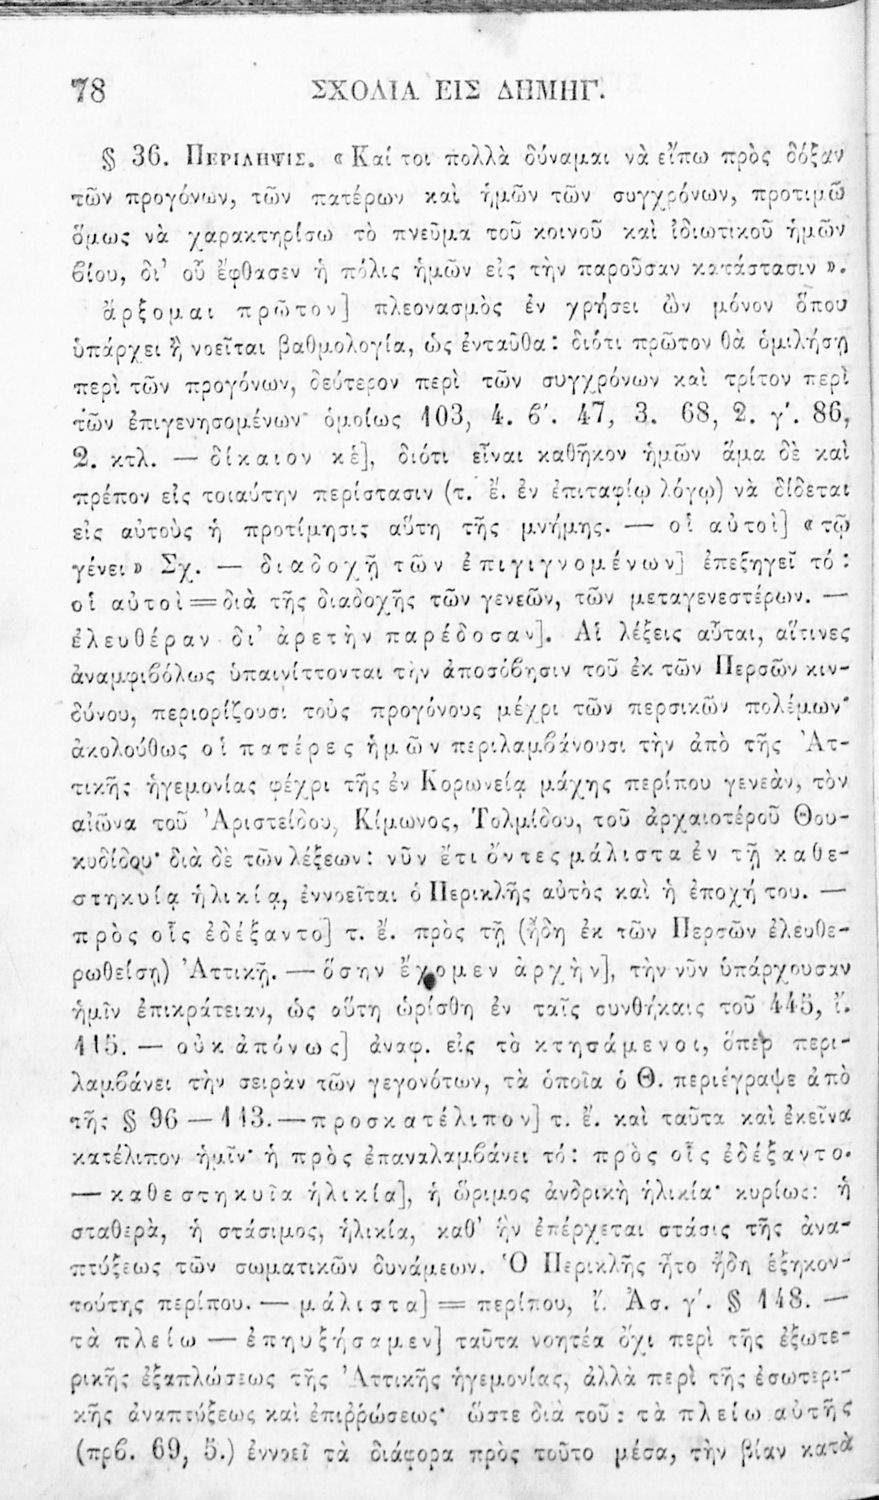 78 ΣΧΟΛΙΑ ΕΙΣ ΔΗΜΗΓ.
§ 36. ΠΕΡΙΛΗΨΙΣ. «Καί τοι πολλὰ δύναμαι νὰ εἴπω πρὸς δόξαν
τῶν προγόνων, τῶν πατέρων καὶ ἡμῶν τῶν συγχρόνων, προτιμῶ
ὅμως νὰ χαρακτηρίσω τὸ πνεῦμα τοῦ κοινοῦ καὶ ἰδιωτικοῦ ἡμῶν
βίου, δι' οὗ ἔφθασεν ἡ πόλις ἡμῶν εἰς τὴν παροῦσαν κατάστασιν».
ἄρξομαι πρῶτον] πλεονασμὸς ἐν χρήσει ὢν μόνον ὅπου
ὑπάρχει ἢ νοεῖται βαθμολογία, ὡς ἐνταῦθα: διότι πρῶτον θὰ ὁμιλήσῃ
περὶ τῶν προγόνων, δεύτερον περὶ τῶν συγχρόνων καὶ τρίτον περὶ
τῶν ἐπιγενησομένων· ὁμοίως 103, 4. β'. 47, 3. 68, 2. γ'. 86,
2. κτλ. — δίκαιον κἑ], διότι εἶναι καθῆκον ἡμῶν ἅμα δὲ καὶ
πρέπον εἰς τοιαύτην περίστασιν (τ. ἔ. ἐν ἐπιταφίῳ λόγῳ) νὰ δίδεται
εἰς αὐτοὺς ἡ προτίμησις αὕτη τῆς μνήμης. — οἱ αὐτοὶ] «τῷ
γένει» Σχ. — διαδοχῇ τῶν ἐπιγιγνομένων] ἐπεξηγεῖ τό:
οἱ αὐτοὶ = διὰ τῆς διαδοχῆς τῶν γενεῶν, τῶν μεταγενεστέρων. —
ἐλευθέραν δι' ἀρετὴν παρέδοσαν]. Αἱ λέξεις αὗται, αἵτινες
ἀναμφιβόλως ὑπαινίττονται τὴν ἀποσόβησιν τοῦ ἐκ τῶν Περσῶν κιν-
δύνου, περιορίζουσι τοὺς προγόνους μέχρι τῶν περσικῶν πολέμων·
ἀκολούθως οἱ πατέρες ἡμῶν περιλαμβάνουσι τὴν ἀπὸ τῆς Ἀτ-
τικῆς ἡγεμονίας φέχρι τῆς ἐν Κορωνείᾳ μάχης περίπου γενεὰν, τὸν
αἰῶνα τοῦ Ἀριστείδου, Κίμωνος, Τολμίδου, τοῦ ἀρχαιοτέροῦ Θου-
κυδίδου· διὰ δὲ τῶν λέξεων: νῦν ἔτι ὄντες μάλιστα ἐν τῇ καθε-
στηκυίᾳ ἡλικίᾳ, ἐννοεῖται ὁ Περικλῆς αὐτὸς καὶ ἡ ἐποχή του. —
πρὸς οἷς ἐδέξαντο] τ. ἔ. πρὸς τῇ (ἤδη ἐκ τῶν Περσῶν ἐλευθε-
ρωθείσῃ) Ἀττικῇ. — ὅσην ἔχομεν ἀρχὴν], τὴν νῦν ὑπάρχουσαν
ἡμῖν ἐπικράτειαν, ὡς αὕτη ὡρίσθη ἐν ταῖς συνθήκαις τοῦ 445, ἴ.
115. — οὐκ ἀπόνως] ἀναφ. εἰς τὸ κτησάμενοι, ὅπερ περι-
λαμβάνει τὴν σειρὰν τῶν γεγονότων, τὰ ὁποῖα ὁ Θ. περιέγραψε ἀπὸ
τῆς § 96 — 113. — προσκατέλιπον] τ. ἔ. καὶ ταῦτα καὶ ἐκεῖνα
κατέλιπον ἡμῖν· ἡ πρὸς ἐπαναλαμβάνει τό: πρὸς οἷς ἐδέξαντο.
— καθεστηκυῖα ἡλικία], ἡ ὥριμος ἀνδρικὴ ἡλικία· κυρίως: ἡ
σταθερὰ, ἡ στάσιμος, ἡλικία, καθ' ἣν ἐπέρχεται στάσις τῆς ἀνα-
πτύξεως τῶν σωματικῶν δυνάμεων. Ὁ Περικλῆς ἦτο ἤδη ἑξηκον-
τούτης περίπου. — μάλιστα] = περίπου, ἴ. Ἀσ. γ'. § 148. —
τὰ πλείω — ἐπηυξήσαμεν] ταῦτα νοητέα ὄχι περὶ τῆς ἐξωτε-
ρικῆς ἐξαπλώσεως τῆς Ἀττικῆς ἡγεμονίας, ἀλλὰ περὶ τῆς ἐσωτερι-
κῆς ἀναπτύξεως καὶ ἐπιῤῥώσεως· ὥστε διὰ τοῦ: τὰ πλείω αὐτῆς
(πρβ. 69, 5.) ἐννοεῖ τὰ διάφορα πρὸς τοῦτο μέσα, τὴν βίαν κατὰ